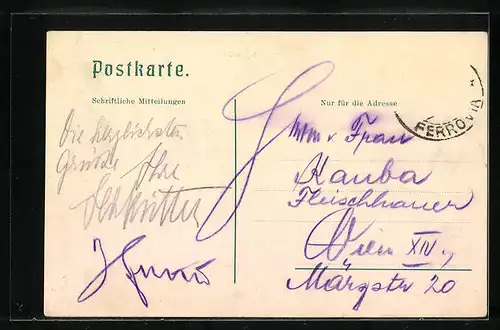 Postkarte.
Schriftliche Mitteilungen
Nur für die Adresse
FERROVIA
Die herzlichsten
Grüsse Ihre
Frau
Kauba
Fleischhauer
Wien XIV.,
Märzstr 20